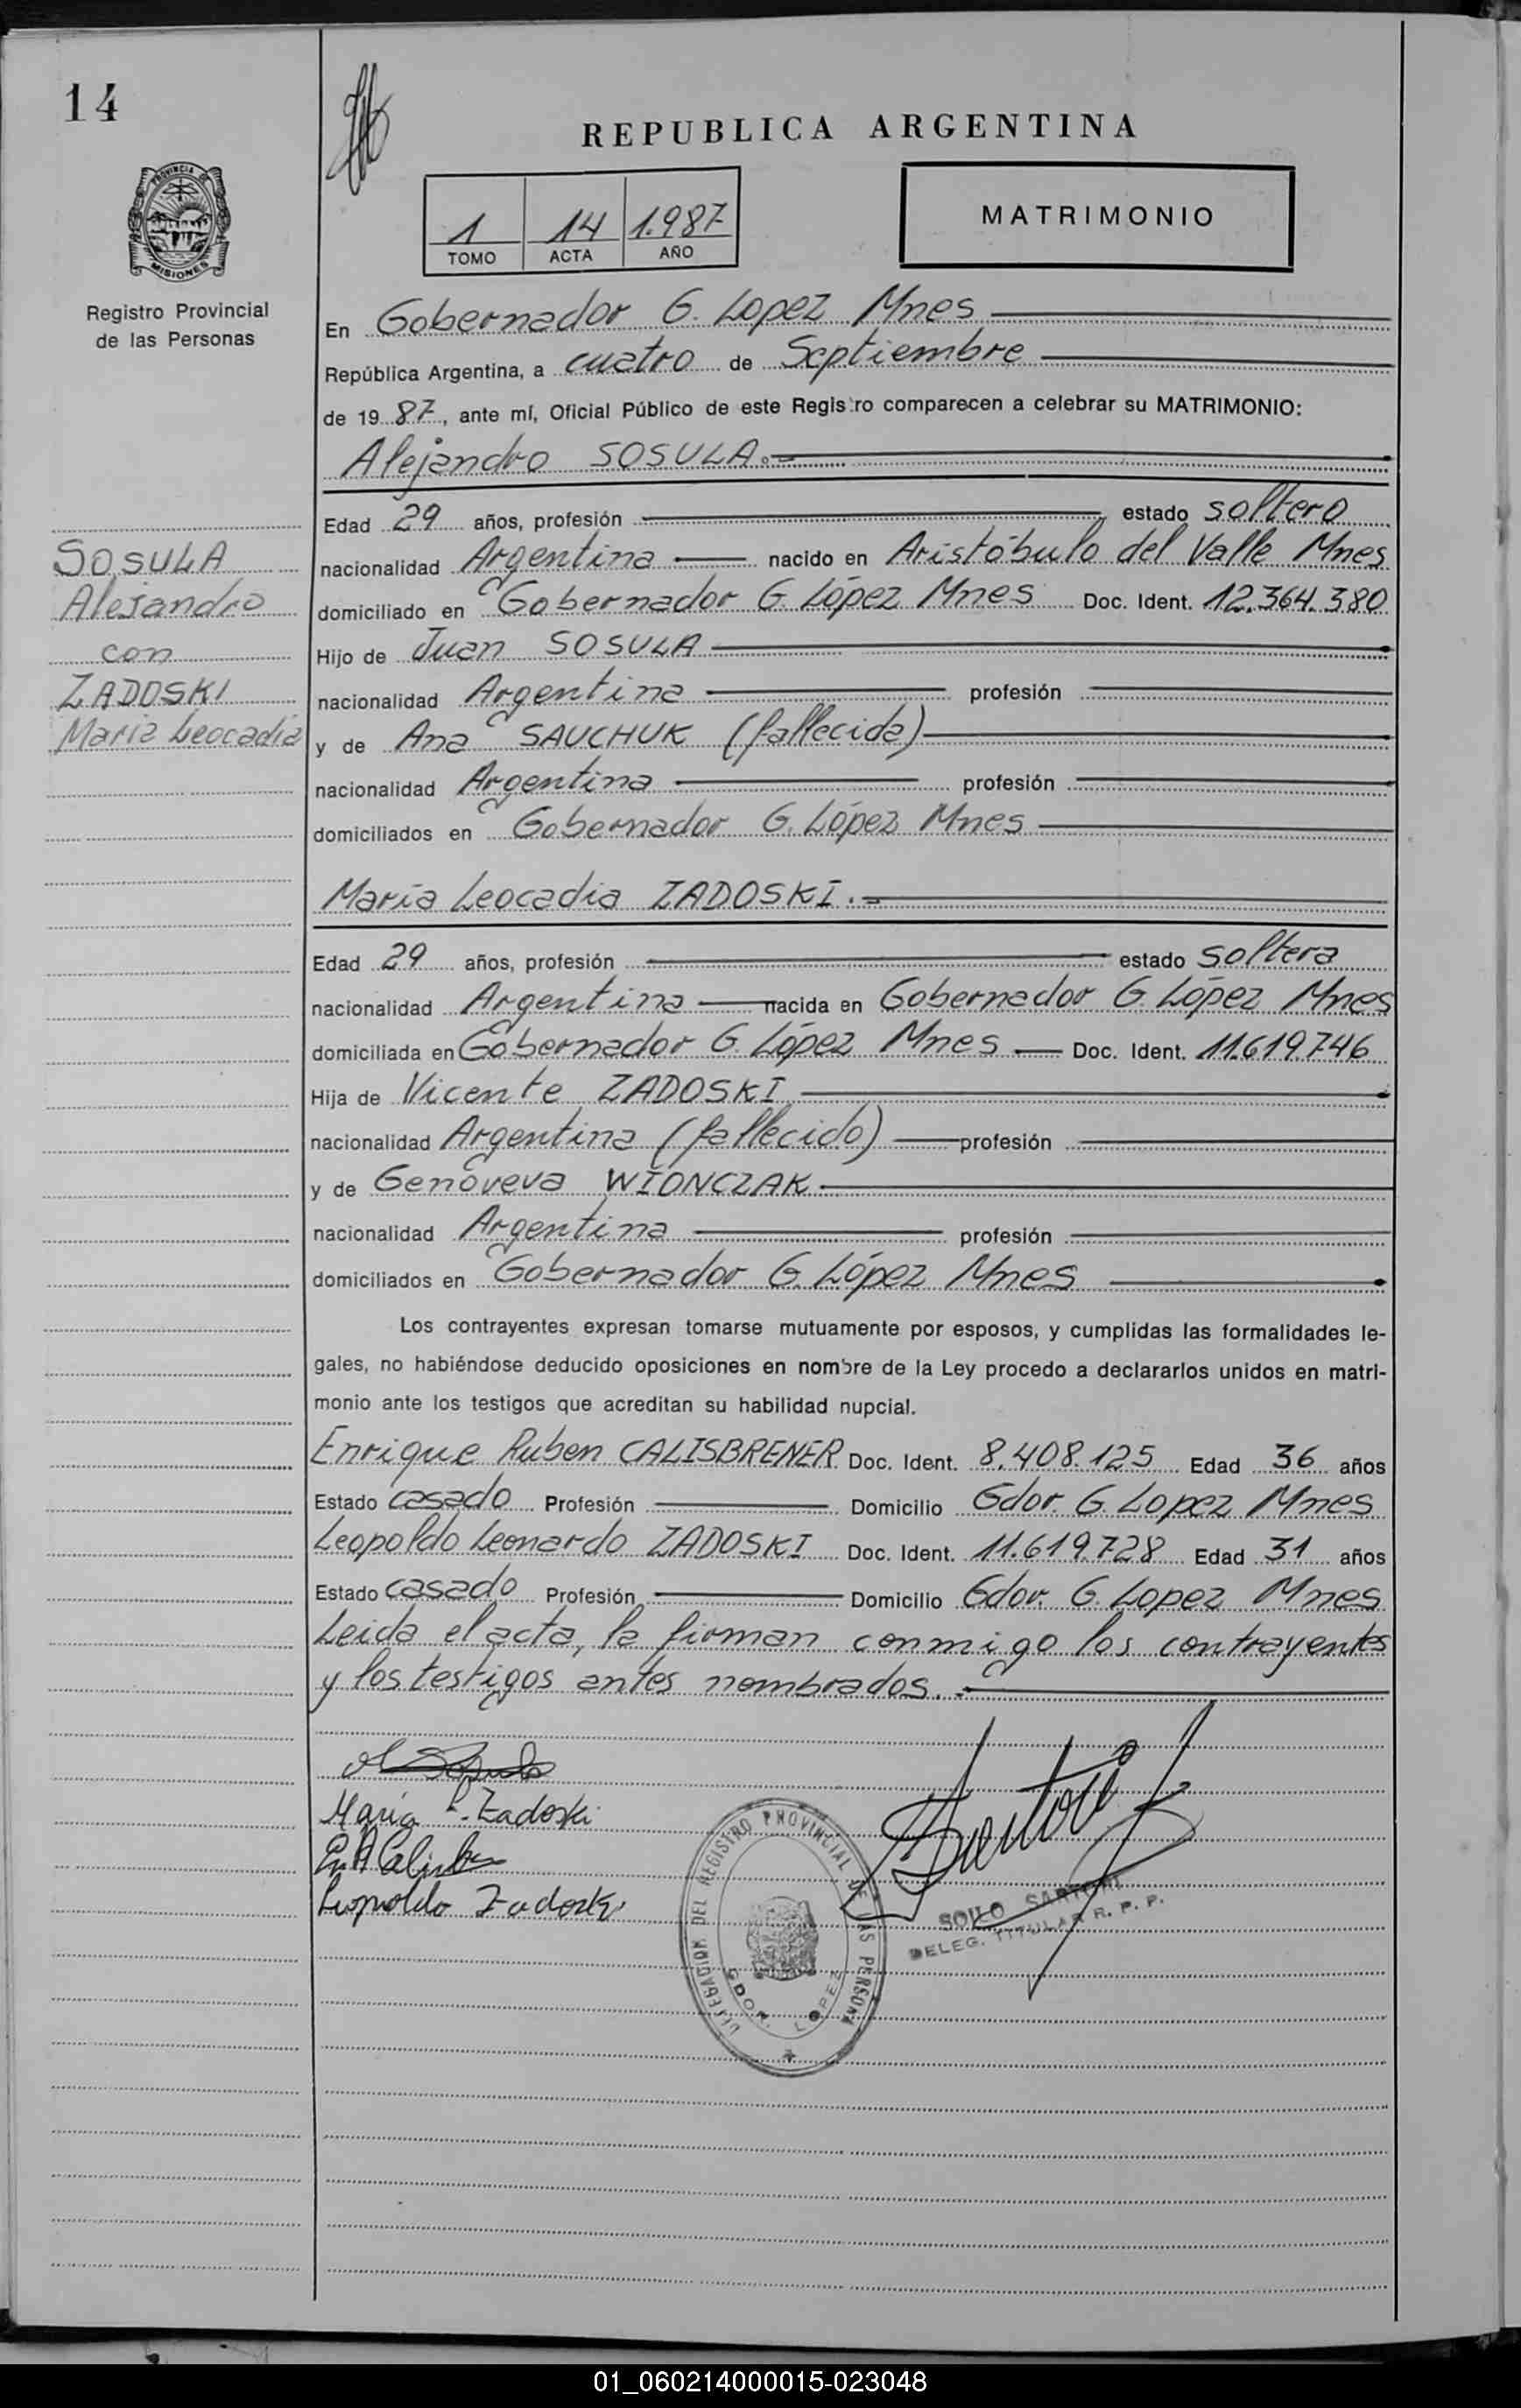 14
REPUBLICA ARGENTINA
PROVINCIA DE
MISIONES
1 14 1.987
TOMO ACTA AÑO
MATRIMONIO
Registro Provincial
de las Personas
En Gobernador G. Lopez Mnes
República Argentina, a cuatro de Septiembre
de 19 87, ante mí, Oficial Público de este Registro comparecen a celebrar su MATRIMONIO:
Alejandro SOSULA.=
Edad 29 años, profesión estado soltero
SOSULA
Alejandro
con
ZADOSKI
Maria Leocadia
nacionalidad Argentina nacido en Aristóbulo del Valle Mnes
domiciliado en Gobernador G. López Mnes Doc. Ident. 12.364.380
Hijo de Juan SOSULA
nacionalidad Argentina profesión
y de Ana SAUCHUK (fallecida)
nacionalidad Argentina profesión
domiciliados en Gobernador G. López Mnes
María Leocadia ZADOSKI.=
Edad 29 años, profesión estado soltera
nacionalidad Argentina nacida en Gobernador G. López Mnes
domiciliada en Gobernador G. López Mnes Doc. Ident. 11.619.746
Hija de Vicente ZADOSKI
nacionalidad Argentina (fallecido) profesión
y de Genoveva WIONCZAK
nacionalidad Argentina profesión
domiciliados en Gobernador G. López Mnes
Los contrayentes expresan tomarse mutuamente por esposos, y cumplidas las formalidades le-
gales, no habiéndose deducido oposiciones en nombre de la Ley procedo a declararlos unidos en matri-
monio ante los testigos que acreditan su habilidad nupcial.
Enrique Ruben CALISBRENER Doc. Ident. 8.408.125 Edad 36 años
Estado casado Profesión Domicilio Gdor. G. Lopez Mnes
Leopoldo Leonardo ZADOSKI Doc. Ident. 11.619.728 Edad 31 años
Estado casado Profesión Domicilio Gdor. G. Lopez Mnes
Leida el acta, la firman conmigo los contrayentes
y los testigos antes nombrados. .=
María L. Zadoski
Leopoldo Zadoski
DELEGACION DEL REGISTRO PROVINCIAL DE LAS PERSONAS
GDOR. LOPEZ
SOILO SARTORI
DELEG. TITULAR R. P. P.
01_060214000015-023048